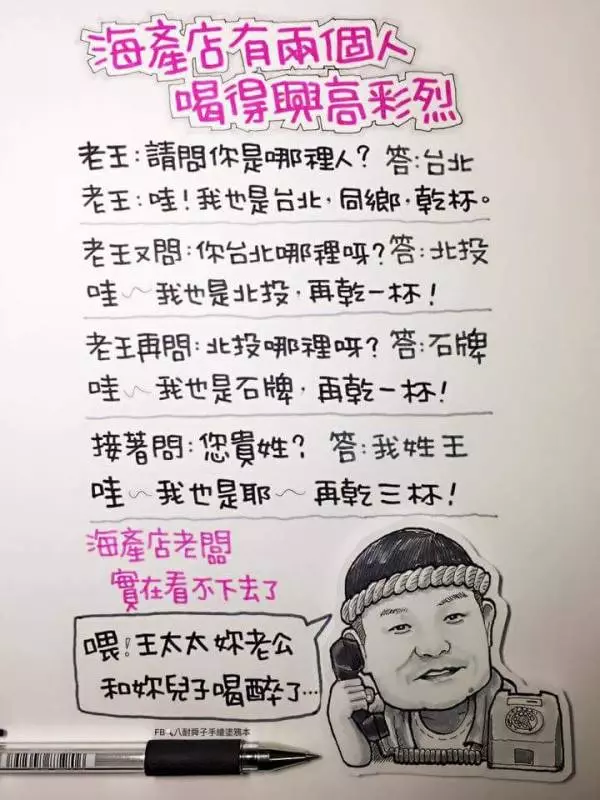 海產店有兩個人
喝得興高彩烈
老王:請問你是哪裡人?答:台北
老王:哇!我也是台北,同鄉,乾杯。
老王又問:你台北哪裡呀?答:北投
哇~我也是北投,再乾一杯!
老王再問:北投哪裡呀?答:石牌
哇~我也是石牌,再乾一杯!
接著問:您貴姓?答:我姓王
哇~我也是耶~再乾三杯!
海產店老闆
實在看不下去了
喂!王太太妳老公
和妳兒子喝醉了…
FB:八耐舜子手繪塗鴉本